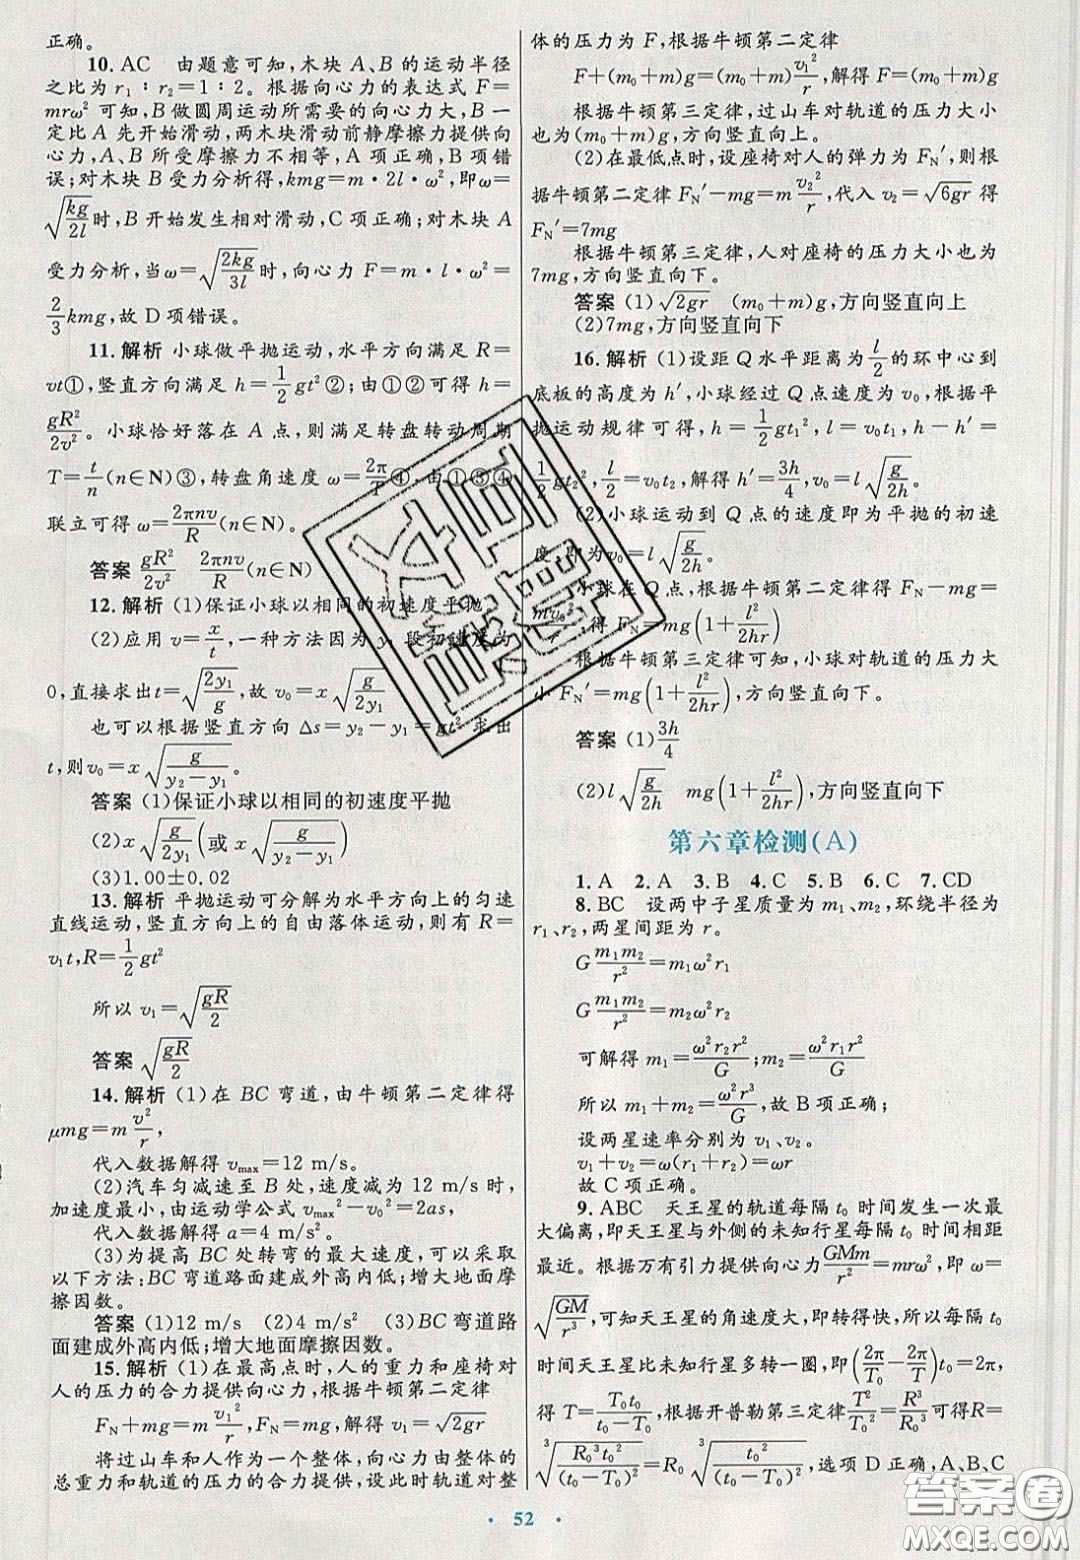 正确。
10. AC　由题意可知,木块 A、B 的运动半径
之比为 r₁∶r₂=1∶2。根据向心力的表达式 F=
mrω² 可知,B 做圆周运动所需要的向心力大,B 一
定比 A 先开始滑动,两木块滑动前静摩擦力提供向
心力,A、B 所受摩擦力不相等,A 项正确,B 项错
误;对木块 B 受力分析得,kmg=m·2l·ω²,即 ω=
√(kg/2l)时,B 开始发生相对滑动,C 项正确;对木块 A
受力分析,当 ω=√(2kg/3l)时,向心力 F=m·l·ω²=
2/3 kmg,故 D 项错误。
11. 解析　小球做平抛运动,水平方向满足 R=
vt①,竖直方向满足 h=1/2 gt²②;由①②可得 h=
gR²/2v²。小球恰好落在 A 点,则满足转盘转动周期
T=t/n(n∈N)③,转盘角速度 ω=2π/T④,由①③④
联立可得 ω=2πnv/R(n∈N)。
答案　gR²/2v²　2πnv/R(n∈N)
12. 解析　(1)保证小球以相同的初速度平抛
(2)应用 v=x/t,一种方法因为 y₁ 段初速度为
0,直接求出 t=√(2y₁/g),故 v₀=x√(g/2y₁)
也可以根据竖直方向 Δs=y₂-y₁=gt² 求出
t,则 v₀=x√(g/(y₂-y₁))。
答案　(1)保证小球以相同的初速度平抛
(2)x√(g/2y₁)(或 x√(g/(y₂-y₁)))
(3)1.00±0.02
13. 解析　平抛运动可分解为水平方向上的匀速
直线运动,竖直方向上的自由落体运动,则有 R=
v₁t,R=1/2 gt²
所以 v₁=√(gR/2)
答案　√(gR/2)
14. 解析　(1)在 BC 弯道,由牛顿第二定律得
μmg=m v²/r,
代入数据解得 vmax=12 m/s。
(2)汽车匀减速至 B 处,速度减为 12 m/s 时,
加速度最小,由运动学公式 vmax²-v₀²=2as,
代入数据解得 a=4 m/s²。
(3)为提高 BC 处转弯的最大速度,可以采取
以下方法:BC 弯道路面建成外高内低;增大地面摩
擦因数。
答案　(1)12 m/s　(2)4 m/s²　(3)BC 弯道路
面建成外高内低;增大地面摩擦因数。
15. 解析　(1)在最高点时,人的重力和座椅对
人的压力的合力提供向心力,根据牛顿第二定律
F_N+mg=m v₁²/r,F_N=mg,解得 v₁=√(2gr)
将过山车和人作为一个整体,向心力由整体的
总重力和轨道的压力的合力提供,设此时轨道对整
体的压力为 F,根据牛顿第二定律
F+(m₀+m)g=(m₀+m)v₁²/r,解得 F=(m₀+m)g
根据牛顿第三定律,过山车对轨道的压力大小
也为(m₀+m)g,方向竖直向上。
(2)在最低点时,设座椅对人的弹力为 F_N′,则根
据牛顿第二定律 F_N′-mg=m v₂²/r,代入 v₂=√(6gr) 得
F_N′=7mg
根据牛顿第三定律,人对座椅的压力大小也为
7mg,方向竖直向下。
答案　(1)√(2gr)　(m₀+m)g,方向竖直向上
(2)7mg,方向竖直向下
16. 解析　(1)设距 Q 水平距离为 l/2 的环中心到
底板的高度为 h′,小球经过 Q 点速度为 v₀,根据平
抛运动规律可得,h=1/2 gt₁²,l=v₀t₁,h-h′=
1/2 gt₂²,l/2=v₀t₂,解得 h′=3h/4,v₀=l√(g/2h)。
(2)小球运动到 Q 点的速度即为平抛的初速
度,即为 v₀=l√(g/2h)。
小球在 Q 点,根据牛顿第二定律得 F_N-mg=
mv₀²/r,得 F_N=mg(1+l²/2hr)
根据牛顿第三定律可知,小球对轨道的压力大
小 F_N′=mg(1+l²/2hr),方向竖直向下。
答案　(1)3h/4
(2)l√(g/2h)　mg(1+l²/2hr),方向竖直向下
第六章检测(A)
1. A　2. A　3. B　4. C　5. B　6. C　7. CD
8. BC　设两中子星质量为 m₁、m₂,环绕半径为
r₁、r₂,两星间距为 r。
G m₁m₂/r²=m₁ω²r₁
G m₁m₂/r²=m₂ω²r₂
可解得 m₁=ω²r₂r²/G;m₂=ω²r₁r²/G
所以 m₁+m₂=ω²r³/G,故 B 项正确;
设两星速率分别为 v₁、v₂。
v₁+v₂=ω(r₁+r₂)=ωr
故 C 项正确。
9. ABC　天王星的轨道每隔 t₀ 时间发生一次最
大偏离,即天王星与外侧的未知行星每隔 t₀ 时间相距
最近。根据万有引力提供向心力 GMm/r²=mrω²,即 ω=
√(GM/r³),可知天王星的角速度大,即转得快,所以每隔 t₀
时间天王星比未知行星多转一圈,即(2π/T₀-2π/T)t₀=2π,
得 T=T₀t₀/(t₀-T₀),根据开普勒第三定律 T²/T₀²=R³/R₀³ 可得 R=
∛(R₀³t₀²/(t₀-T₀)²)=R₀∛(t₀²/(t₀-T₀)²),选项 D 正确,A、B、C
· 52 ·
答案圈
MXQE.COM